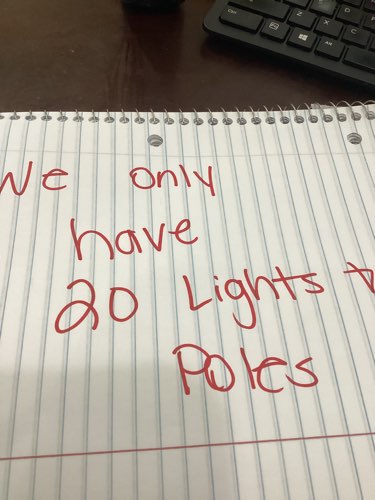 We only
have
20 Lights
Poles